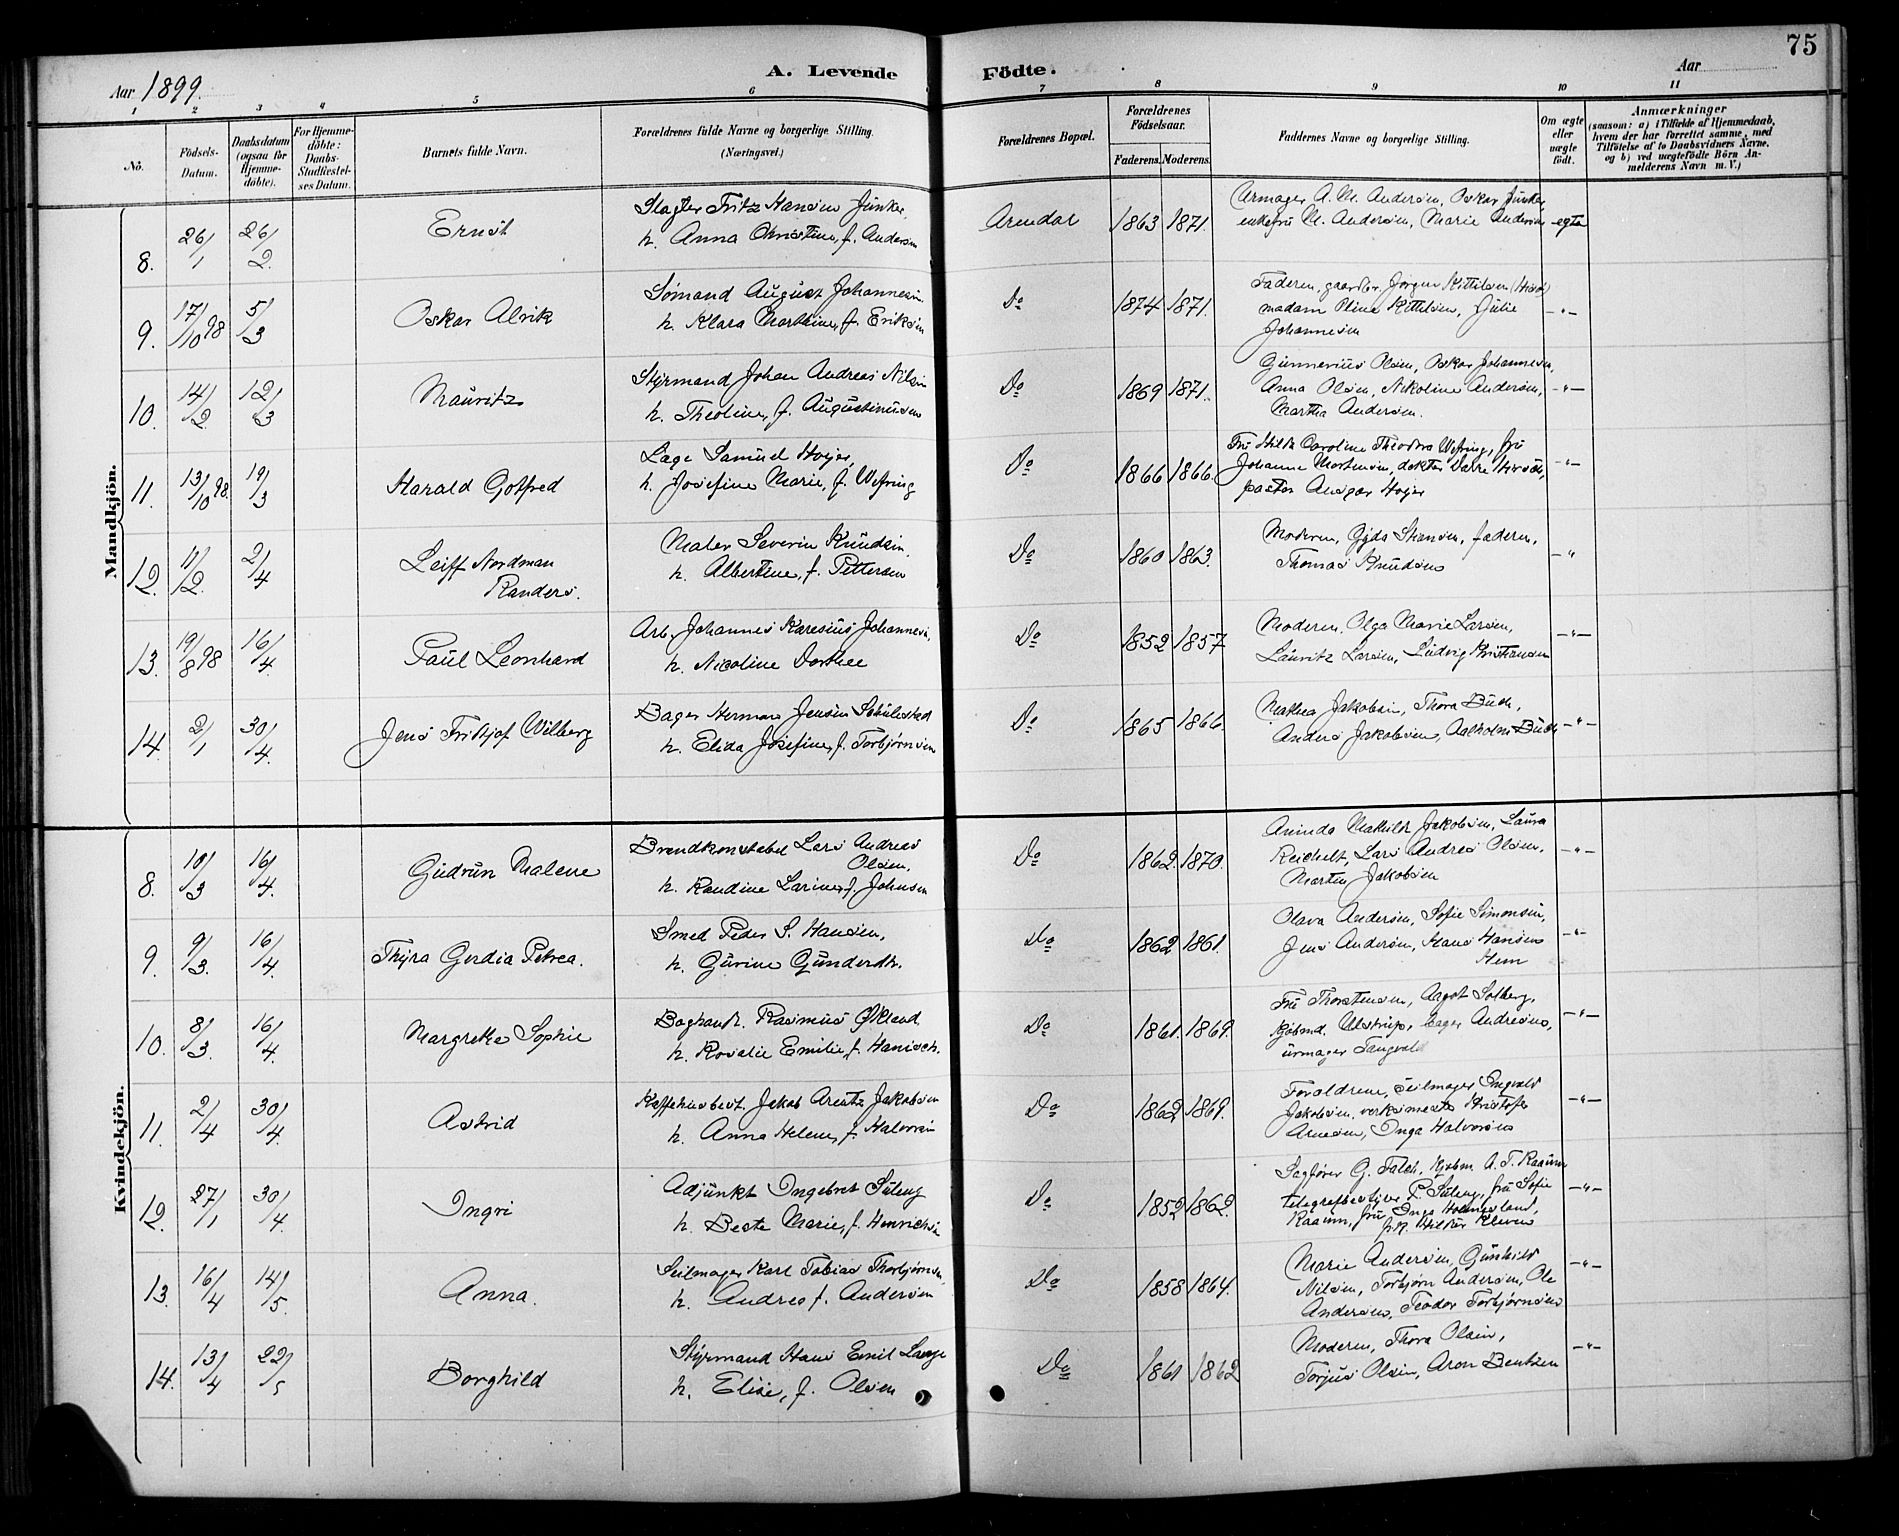 75
Aar 1899.
A. Levende Födte.
Aar
1 2 3 4 5 6 7 8 9 10 11
No.
Födsels-Datum.
Daabsdatum (ogsaa for Hjemmedöbte).
For Hjemmedöbte: Daabs-Stadfæstelses Datum.
Barnets fulde Navn.
Forældrenes fulde Navne og borgerlige Stilling. (Næringsvei.)
Forældrenes Bopæl.
Forældrenes Födselsaar.
Faderens. Moderens.
Faddernes Navne og borgerlige Stilling.
Om ægte eller uægte födt.
Anmærkninger (saasom: a) i Tilfælde af Hjemmedaab, hvem der har forrettet samme, med Tilföielse af to Daabsvidners Navne, og b) ved uægtefödte Börn Anmelderens Navn m. V.)
Mandkjön.
8. 26/1 26/2 Ernst
Slagter Fritz Hansen Junker
h. Anna Christine, f. Andersen
Arendal 1863 1871.
Urmager A. M. Andersen, Oskar Junker,
enkefru M. Andersen, Marie Andersen
egte
9. 17/10 98 5/3 Oskar Alvik
Sömand August Johannesen
h. Klara Marthine, f. Eriksen
Do 1874 1871.
Faderen, Jörgen Kittilsen
madam Oline Kittilsen, Julie
Johannesen
-"-
10. 14/2 12/3 Mauritz
Styrmand Johan Andreas Nilsen
h. Theoline, f. Augustinusen
Do 1869 1871.
Gunnerius Olsen, Oskar Johannesen,
Anna Olsen, Nikoline Andersen,
Martha Andersen.
-"-
11. 13/10 98. 19/3 Harald Gotfred
Læge Samuel Høyer,
h. Josefine Marie, f. Wefring
Do 1866 1866.
Fru Hilda Caroline Theodora Wefring, fru
Johanne Mortensen, doktor
pastor Ansgar Høyer
-"-
12. 11/2. 2/4 Leiff Nordman
Randers.
Maler Severin Knudsen
h. Albertine, f. Pettersen
Do 1860 1863.
Moderen, Gyda Hansen, faderen,
Thomas Knudsen
-"-
13. 19/8 98 16/4. Paul Leonhard
Arb. Johannes Karesius Johannesen,
h. Nicoline Dorthee
Do 1852 1857
Moderen, Olga Marie Larsen,
Lauritz Larsen, Ludvig Kristiansen
-"-
14. 2/1 30/4. Jens Fritjof Wilberg
Bager Herman Jensen Schulestad
h. Elida Josefine, f. Torbjørnsen
Do 1865 1866.
Mathea Jakobsen, Thora Buch,
Anders Jakobsen, Aalholm Buch
-"-
Kvindekjön.
8. 10/3 16/4. Gudrun Malene
Brandkonstabel Lars Andreas
Olsen,
h. Randine Larine, f. Johnsen
Do 1862. 1870.
Mathilde Jakobsen, Laura
Reichelt, Lars Andreas Olsen,
Martin Jakobsen
-"-
9. 9/3. 16/4. Thyra Gerdia Petrea.
Smed Peder S. Hansen,
h. Gurine Gunderdtr.
Do 1862 1861.
Olava Andersen, Sofie Simonsen,
Jens Andersen, Hans Hansen
Hem
-"-
10. 8/3. 16/4. Margrethe Sophie
Boghandl. Rasmus Økland
h. Rosalie Emilie, f. Hanisch.
Do 1861. 1869.
Fru Thorstensen, Aagot Solberg,
kjøbmd. Ulstrup, bager Andresens,
urmager Tangvald
-"-
11. 2/4 30/4. Astrid
Kaffehusbest. Jakob Arentz Jakobsen
h. Anna Helene, f. Halvorsen
Do 1862 1869.
Forældrene, seilmager Ingvald
Jakobsen, verksmester Kristofer
Arnesen, Inga Halvorsen
-"-
12. 27/1 30/4. Ingri
Adjunkt Ingebret Suleng
h. Beate Marie, f. Henrichsen
Do 1852 1862.
Sagfører G. Falch, kjøbm. A. T. Raaum
telegrafbestyrer P. Suleng, fru Sofie
Raaum, fru Inga Holmesland,
frk. Hilda Kleven
-"-
13. 16/4 14/5. Anna.
Seilmager Karl Tobias Thorbjørnsen,
h. Andrea f. Andersen
Do 1858 1864.
Marie Andersen, Gunhild
Nilsen, Torbjørn Andersen, Ole
Andersen, Teodor Torbjørnsen
-"-
14. 13/4 22/5 Borghild
Styrmand Hans Emil Lange
h. Elise, f. Olsen
Do 1861 1862
Moderen, Thora Olsen,
Torjus Olsen, Aron Bentzen
-"-